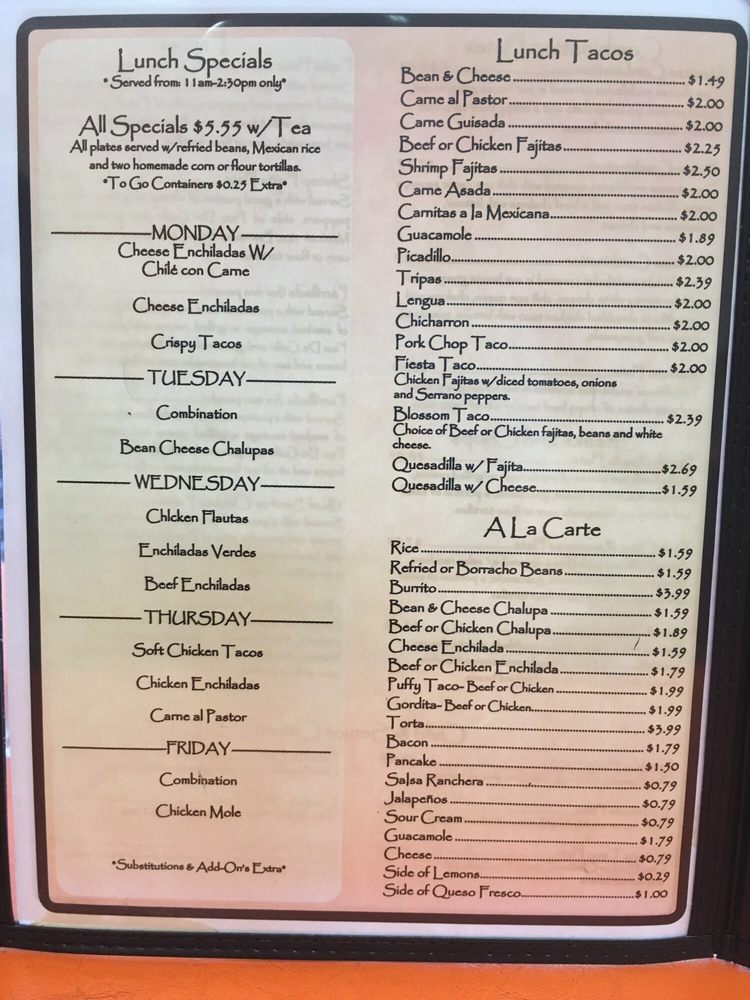 Lunch Specials
*Served from: 11am-2:30pm only*
All Specials $5.55 w/Tea
All plates served w/refried beans, Mexican rice
and two homemade corn or flour tortillas.
*To Go Containers $0.25 Extra*
MONDAY
Cheese Enchiladas W/
Chilé con Carne
Cheese Enchiladas
Crispy Tacos
TUESDAY
Combination
Bean Cheese Chalupas
WEDNESDAY
Chicken Flautas
Enchiladas Verdes
Beef Enchiladas
THURSDAY
Soft Chicken Tacos
Chicken Enchiladas
Carne al Pastor
FRIDAY
Combination
Chicken Mole
*Substitutions & Add-On's Extra*
Lunch Tacos
Bean & Cheese $1.49
Carne al Pastor $2.00
Carne Guisada $2.00
Beef or Chicken Fajitas $2.25
Shrimp Fajitas $2.50
Carne Asada $2.00
Carnitas a la Mexicana $2.00
Guacamole $1.89
Picadillo $2.00
Tripas $2.39
Lengua $2.00
Chicharron $2.00
Pork Chop Taco $2.00
Fiesta Taco $2.00
Chicken Fajitas w/diced tomatoes, onions
and Serrano peppers.
Blossom Taco $2.39
Choice of Beef or Chicken fajitas, beans and white
cheese.
Quesadilla w/ Fajita $2.69
Quesadilla w/ Cheese $1.59
A La Carte
Rice $1.59
Refried or Borracho Beans $1.59
Burrito $3.99
Bean & Cheese Chalupa $1.59
Beef or Chicken Chalupa $1.89
Cheese Enchilada $1.59
Beef or Chicken Enchilada $1.79
Puffy Taco- Beef or Chicken $1.99
Gordita- Beef or Chicken $1.99
Torta $3.99
Bacon $1.79
Pancake $1.50
Salsa Ranchera $0.79
Jalapeños $0.79
Sour Cream $0.79
Guacamole $1.79
Cheese $0.79
Side of Lemons $0.29
Side of Queso Fresco $1.00